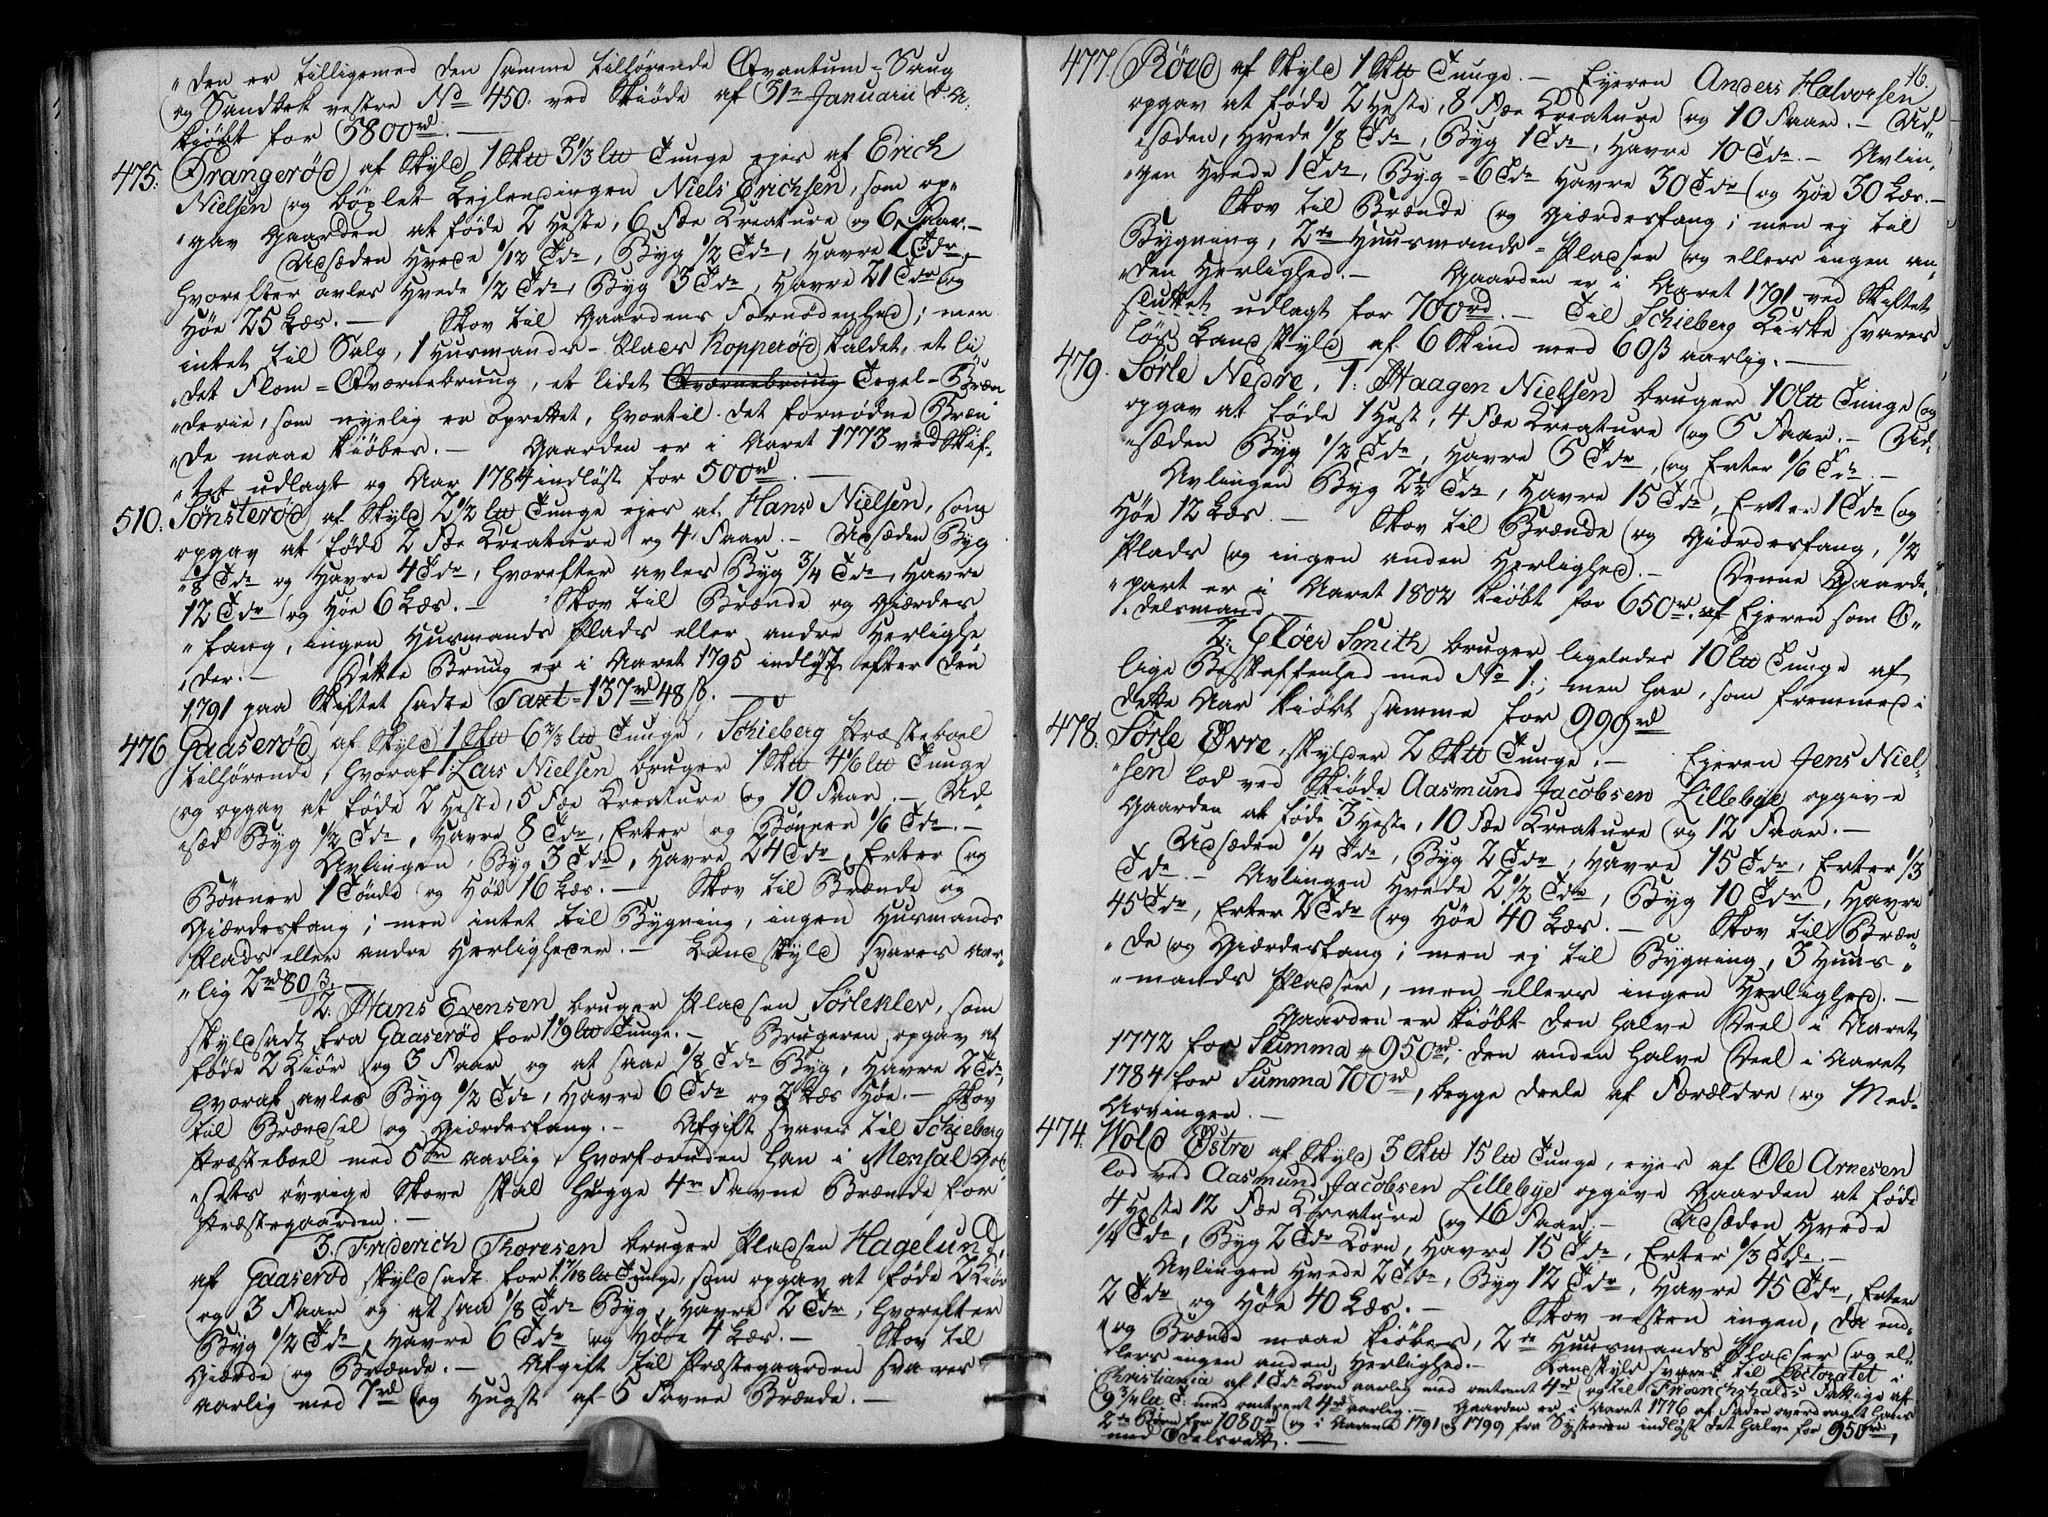 "den er tilligemed den samme tilhørende Qvantum-Saug
og Sandbek vestre No 450: ved Skiøde af 31te Januarii d. A.
kiøbt for 5800rd. —
475: Prangerød af Skyld 1 Sktt 3 1/3 ltt Tunge ejes af Erich
Nielsen og bøxlet Lejlendingen Niels Erichsen, som op"
"gav Gaarden at føde 2 Heste, 6 Fæe Kreature og 6 Faar. —
Udsæden Hvede 1/12 Tde, Byg 1/2 Tde, Havre 7 Tdr,
hvorefter avles Hvede 1/2 Tde, Byg 3 Tdr, Havre 21 Tdr og
Høe 25 Læs. — Skov til Gaardens Fornødenhed; men
intet til Salg, 1 Husmands-Plads Kopperød kaldet, et li
"det Flom-Qværnebrung, et lidet Qværnebrung Tegel-Bræn
"derie, som nyelig er oprettet, hvortil det fornødne Bræn
"de maae kiøbes. — Gaarden er i Aaret 1773 ved Skif-
"tet udlagt og Aar 1784 indløst for 500rd —
510: Tønsterød af Skyld 2 1/2 ltt Tunge ejes af Hans Nielsen, som
opgav at føde 2 Fæe Kreature og 4 Faar. — Udsæden Byg
1/8 Tde og Havre 4 Tdr, hvorefter avles Byg 3/4 Tde, Havre
12 Tdr og Høe 6 Læs. — Skov til Brænde og Giærdes
"fang, ingen Husmands Plads eller andre Herlighe
"der. — Dette Brug er i Aaret 1795 indløst efter den
1791 paa Skiftet sadte Taxt 137rd 48 ß. —
476 Gaaserød af Skyld 1 Sktt 6 2/3 ltt Tunge, Schieberg Præsteboel
tilhørende, hvoraf 1: Lars Nielsen bruger 1 Sktt 4 1/6 ltt Tunge
og opgav at føde 2 Heste, 5 Fæe Kreature og 10 Faar. — Ud"
"sæd Byg 1/2 Tde, Havre 8 Tdr, Erter og Bønner 1/6 Tde. —
Avlingen, Byg 3 Tdr, Havre 24 Tdr, Erter og
Bønner 1 Tønde og Høe 16 Læs. — Skov til Brænde og
Giærdesfang; men intet til Bygning, ingen Husmands
Plads eller andre Herligheder. — Landskyld svares aar-
"lig 2rd 80 ß. —
2: Hans Evensen bruger Pladsen Sørlekler, som
skyldsadt fra Gaaserød for 1 1/9 ltt Tunge. — Brugeren opgav at
føde 2 Kiør og 3 Faar og at saae 1/8 Tde Byg, Havre 2 Tdr,
hvoraf avles Byg 1/2 Tde, Havre 6 Tdr og 2 Læs Høe. — Skov
til Brændsel og Giærdesfang. — Afgift svares til Schieberg
Præsteboel med 5rd aarlig, hvorforuden han i Mensal God
"sets øvrige Skove skal hugge 4re Favne Brænde for
Præstegaarden. —
3. Friderich Thoresen bruger Pladsen Hagelund,
af Gaaserød skyldsadt for 1 7/18 ltt Tunge, som opgav at føde 2 Kiør
og 3 Faar og at saae 1/8 Tde Byg, Havre 2 Tdr, hvorefter
Byg 1/2 Tde, Havre 6 Tdr og Høe 4 Læs. — Skov til
Giærde og Brænde. — Afgift til Præstegaarden svares
aarlig med 7rd og Hugst af 5 Favne Brænde. —
16.
477. Røed af Skyld 1 Sktt Tunge. — Ejeren Anders Halvorsen
opgav at føde 2 Heste, 8 Fæe Kreature og 10 Faar. — Ud"
"sæden, Hvede 1/8 Tde, Byg 1 Tde, Havre 10 Tdr. — Avlin"
"gen Hvede 1 Tde, Byg 6 Tdr Havre 30 Tdr og Høe 30 Læs. —
Skov til Brænde og Giærdesfang; men ej til
Bygning, 2de Huusmands-Pladser og ellers ingen an"
"den Herlighed. — Gaarden er i Aaret 1791 ved Skiftet
sluttet udlagt for 700rd. — Til Schieberg Kirke svares
løs Landskyld af 6 Skind med 60 ß aarlig. —
479. Sørle Nedre, 1: Haagen Nielsen bruger 10 ltt Tunge og
opgav at føde 1 Hest, 4 Fæe Kreature og 5 Faar. — Ud"
"sæden Byg 1/2 Tde, Havre 5 Tdr, og Erter 1/6 Tde. —
Avlingen Byg 2 1/2 Tde, Havre 15 Tdr, Erter 1 Tde og
Høe 12 Læs. — Skov til Brænde og Giærdesfang, 1/2
Plads og ingen anden Herlighed. — Denne Gaarde
"part er i Aaret 1802 kiøbt for 650rd af Ejeren som O"
"delsmand
2: Eløer Smith bruger ligeledes 10 ltt Tunge af
lige Beskaffenhed med No 1:; men har, som fremmed i
dette Aar kiøbt samme for 999rd
478: Sørle Øvre, skylder 2 Sktt Tunge. — Ejeren Jens Niel-
"sen lod ved Skiøde Aasmund Jacobsen Lillebye opgive
Gaarden at føde 3 Heste, 10 Fæe Kreature og 12 Faar. —
Udsæden 1/4 Tde, Byg 2 Tdr, Havre 15 Tdr, Erter 1/3
Tde. — Avlingen Hvede 2 1/2 Tde, Byg 10 Tdr, Havre
45 Tdr, Erter 2 Tdr og Høe 40 Læs. — Skov til Bræn"
"de og Giærdesfang; men ej til Bygning, 3 Huus"
"mands Pladser, men ellers ingen Herlighed. —
Gaarden er kiøbt den halve Deel i Aaret
1772 for Summa 950rd, den anden halve Deel i Aaret
1784 for Summa 700rd, begge deele af Forældre og Med-
Arvingen. —
474: Wold Østre af Skyld 3 Sktt 15 ltt Tunge, ejes af Ole Arnesen
lod ved Aasmund Jacobsen Lillebye opgive Gaarden at føde
4 Heste 12 Fæe Kreature og 16 Faar. — Udsæden Hvede
1/4 Tde, Byg 2 Tdr Korn, Havre 15 Tdr, Erter 1/3 Tde. —
Avlingen Hvede 2 Tdr, Byg 12 Tdr, Havre 45 Tdr, Erter
2 Tdr og Høe 40 Læs. — Skov nesten ingen, da end-
og Brænde maae kiøbes, 2de Huusmands Pladser og el"
"lers ingen anden Herlighed. — Landskyld svares til Lectoratet i
Christiania af 1 Tde Korn aarlig med omtrent 4rd og til Friderichshalds Fattige af
9 3/4 ltt T: med omtrent 4rd aarlig. — Gaarden er i Aaret 1776 af Fadre overdraget hans
2de Børn for 1080rd og i Aarene 1791 og 1799 for Systeren indløst det halve for 950rd,
med Odelsrett. —